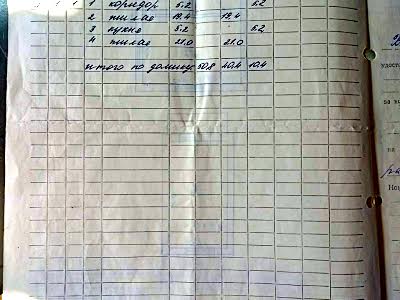 1 1 1 коридор 5.2 5.2
2 жилая 19.4 19.4
3 кухня 5.2 5.2
4 жилая 21.0 21.0
итого по домику 50.8 40.4 10.4
удост
за
на